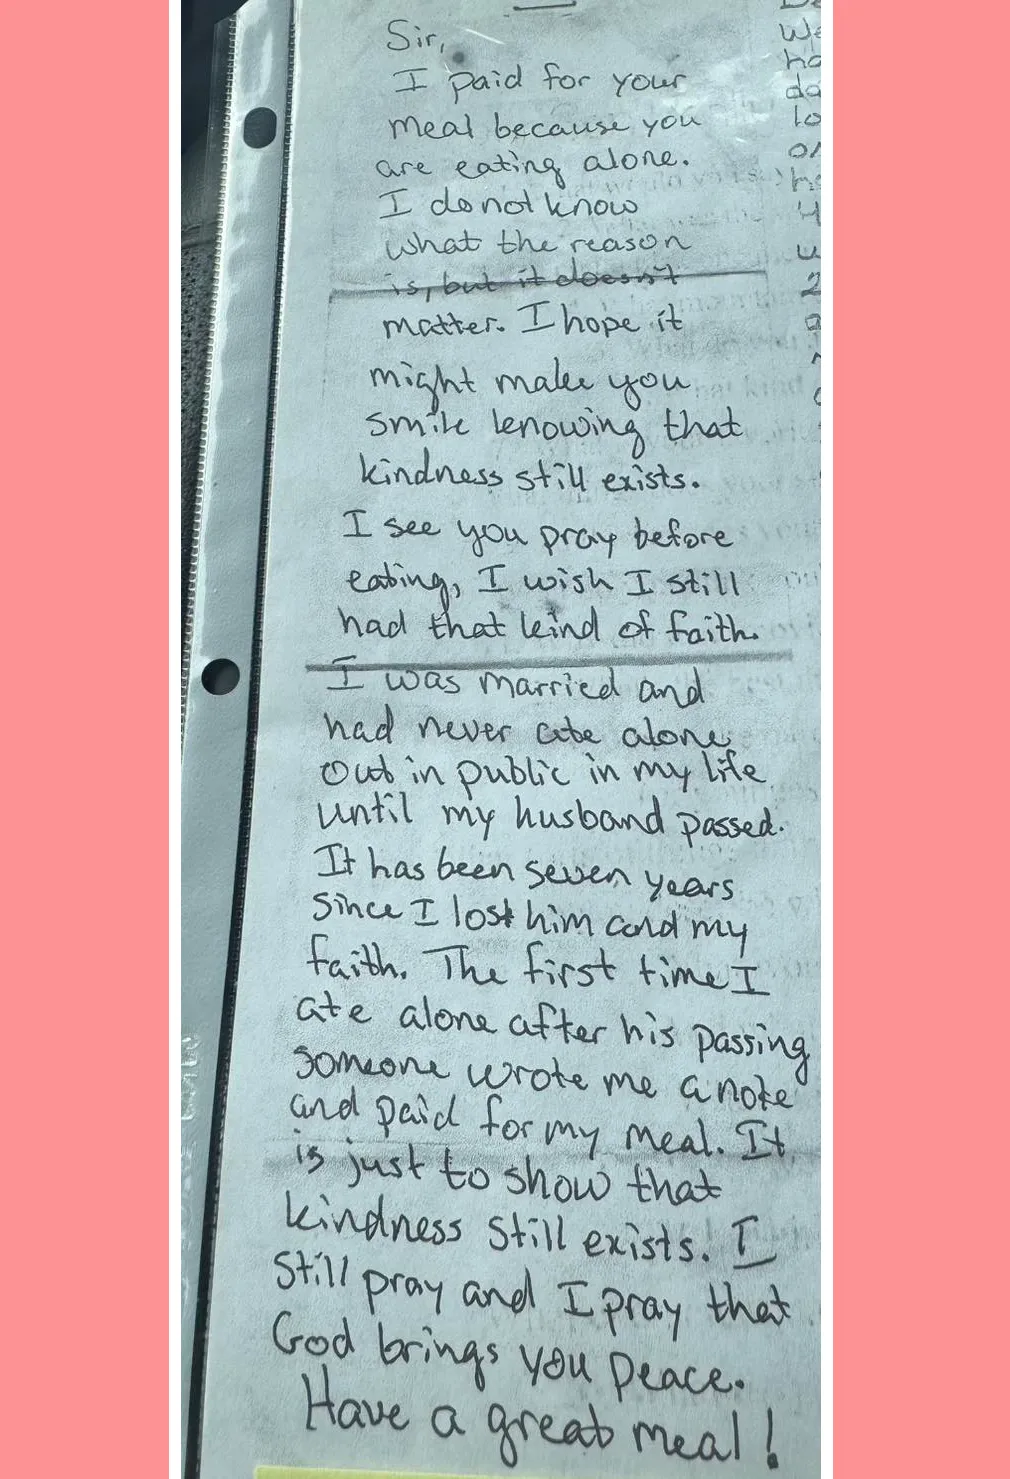 Sir,
I paid for your
meal because you
are eating alone.
I do not know
what the reason
is, but it doesn't
matter. I hope it
might make you
smile knowing that
kindness still exists.
I see you pray before
eating, I wish I still
had that kind of faith.
I was married and
had never ate alone
out in public in my life
until my husband passed.
It has been seven years
since I lost him and my
faith. The first time I
ate alone after his passing
someone wrote me a note
and paid for my meal. It
is just to show that
kindness still exists. I
still pray and I pray that
God brings you peace.
Have a great meal!